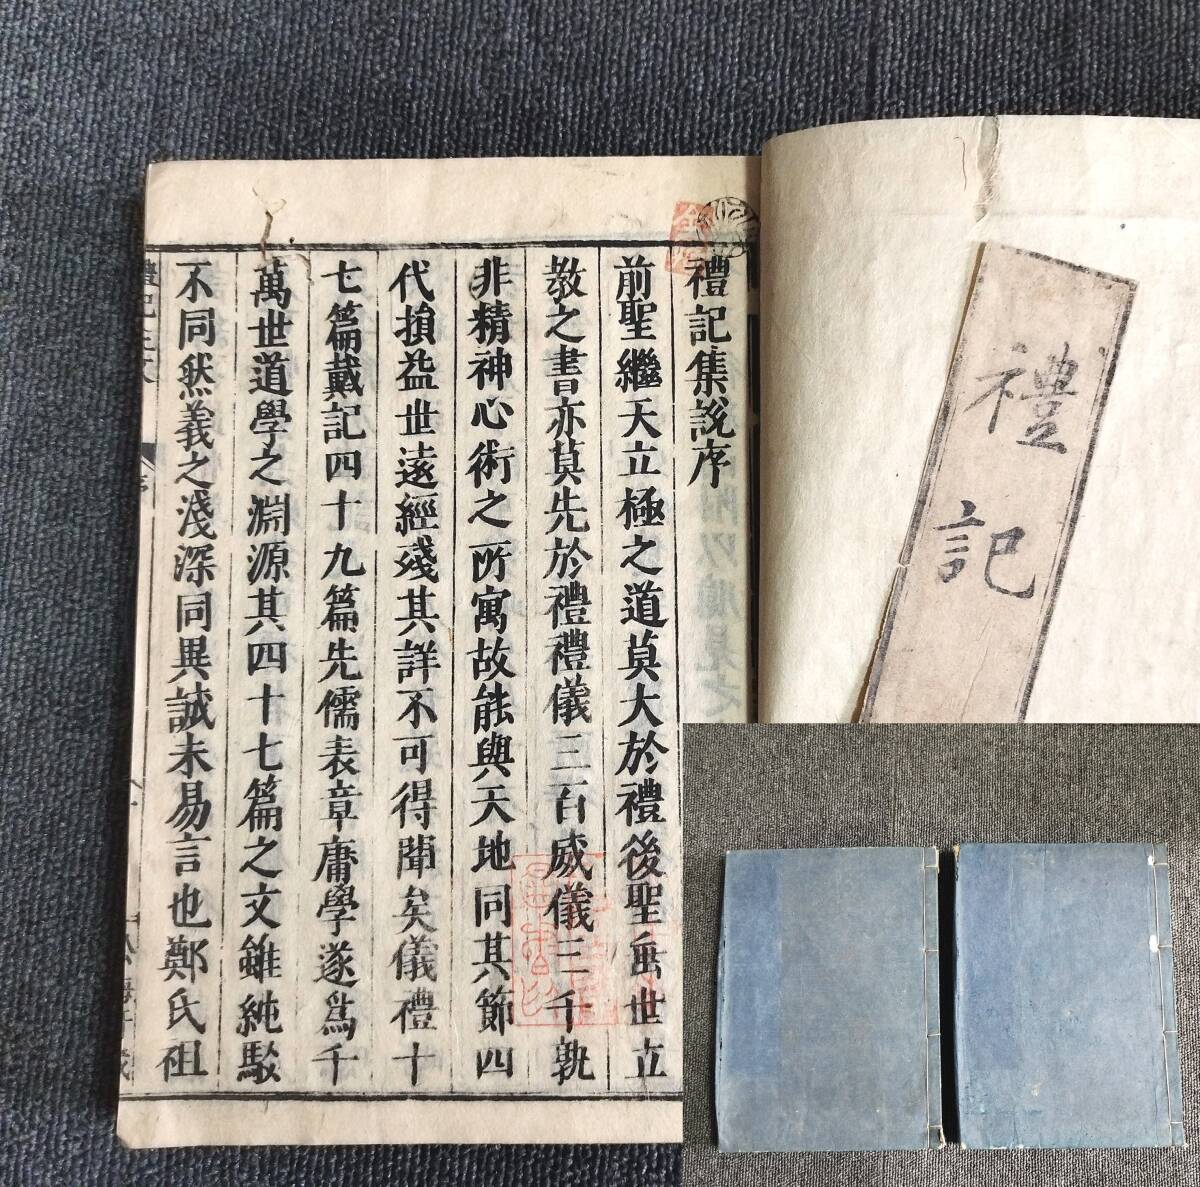 禮記
禮記集說序
前聖繼天立極之道莫大於禮後聖垂世立
教之書亦莫先於禮禮儀三百威儀三千孰
非精神心術之所寓故能與天地同其節四
代損益世遠經殘其詳不可得聞矣儀禮十
七篇戴記四十九篇先儒表章庸學遂爲千
萬世道學之淵源其四十七篇之文雖純駁
不同然義之淺深同異誠未易言也鄭氏祖